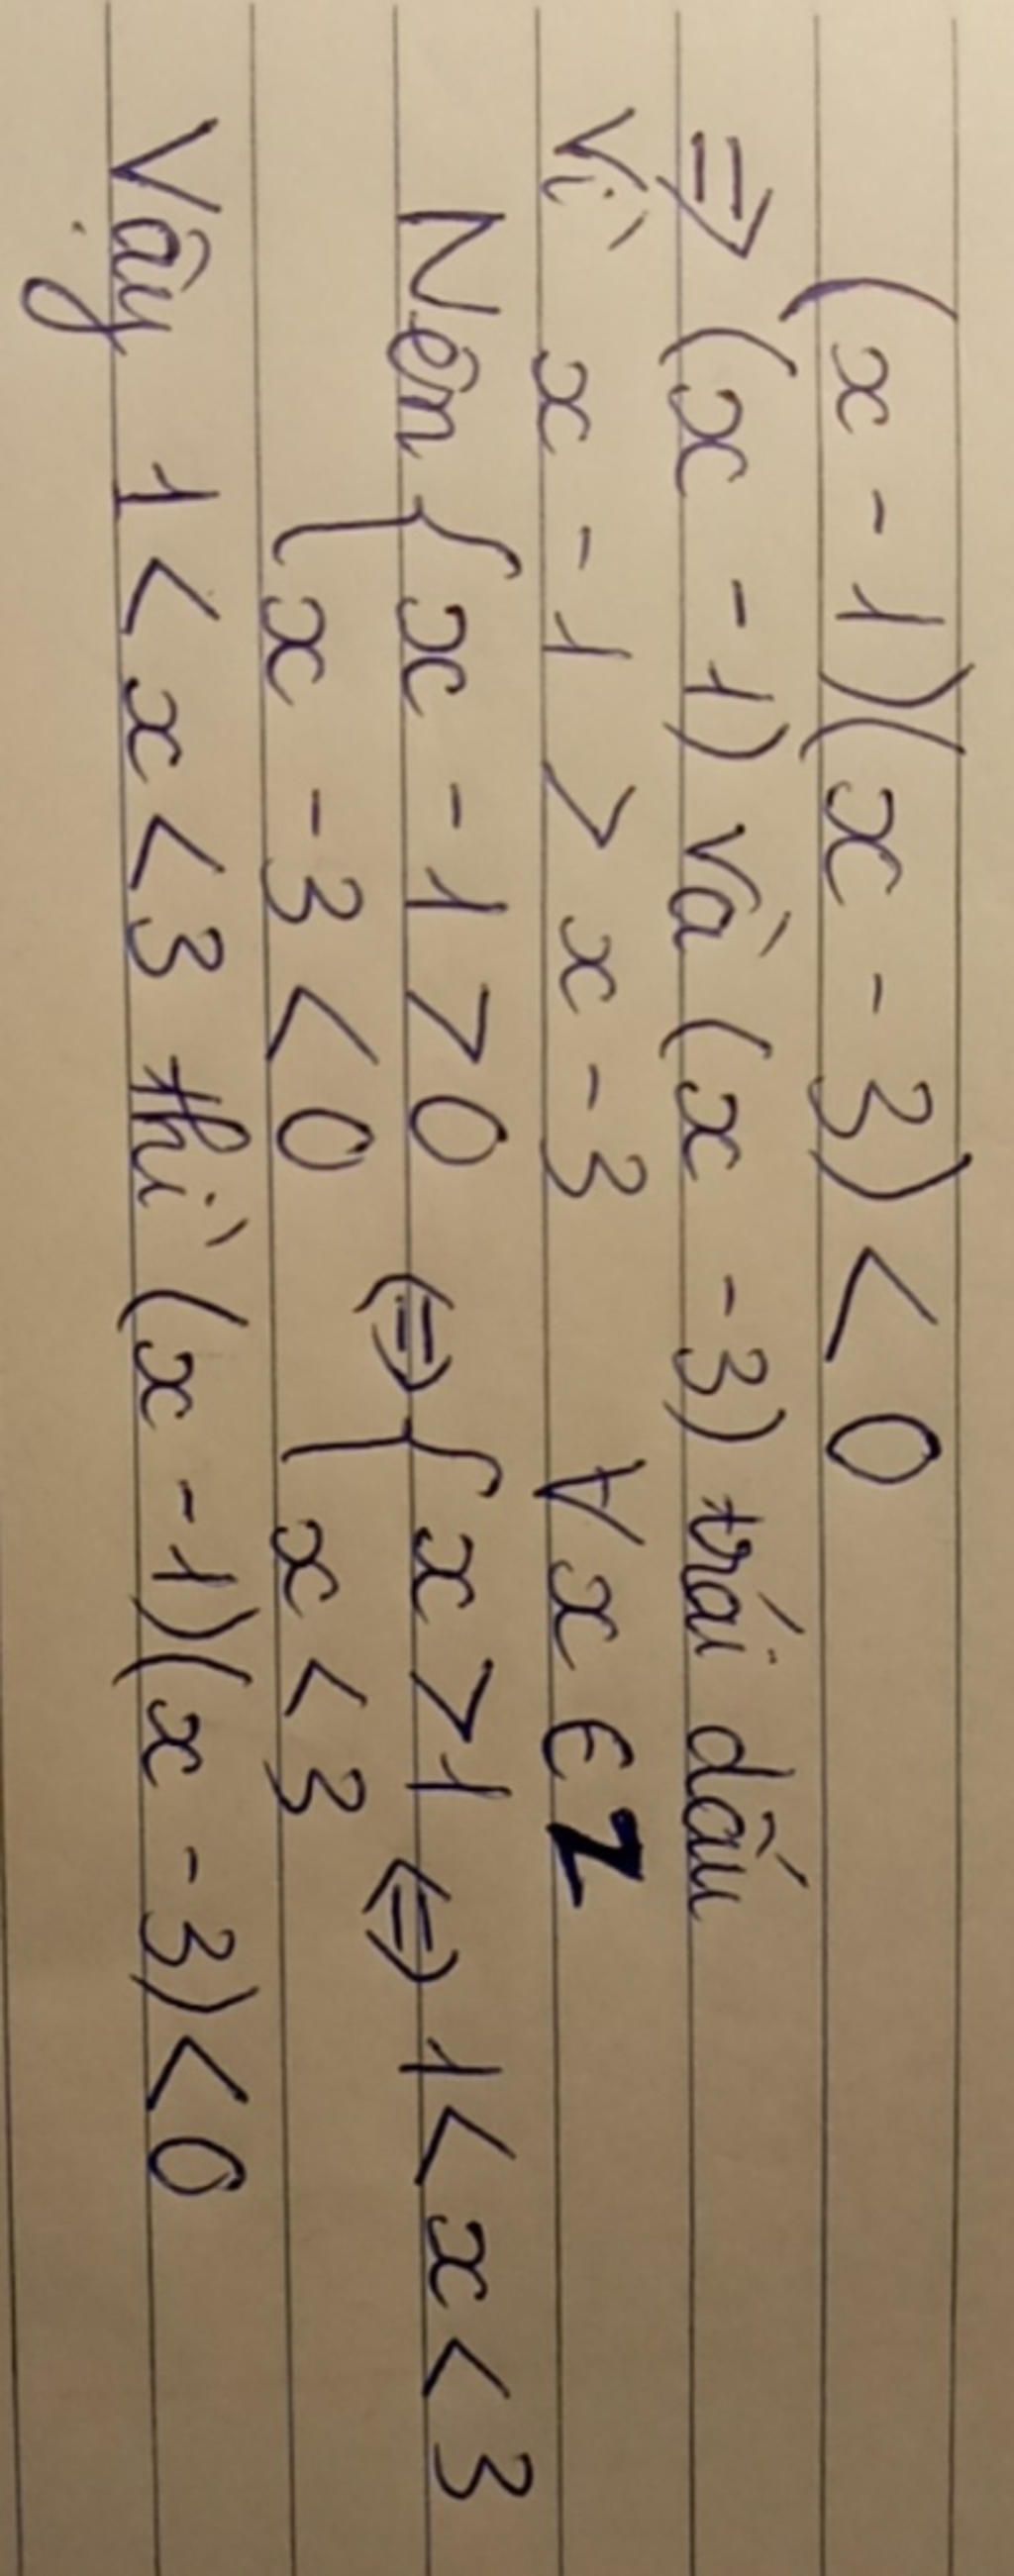 (x - 1)(x - 3) < 0
=> (x - 1) và (x - 3) trái dấu
Vì x - 1 > x - 3 ∀ x ∈ Z
Nên { x - 1 > 0 ⇔ { x > 1 ⇔ 1 < x < 3
x - 3 < 0 x < 3
Vậy 1 < x < 3 thì (x - 1)(x - 3) < 0